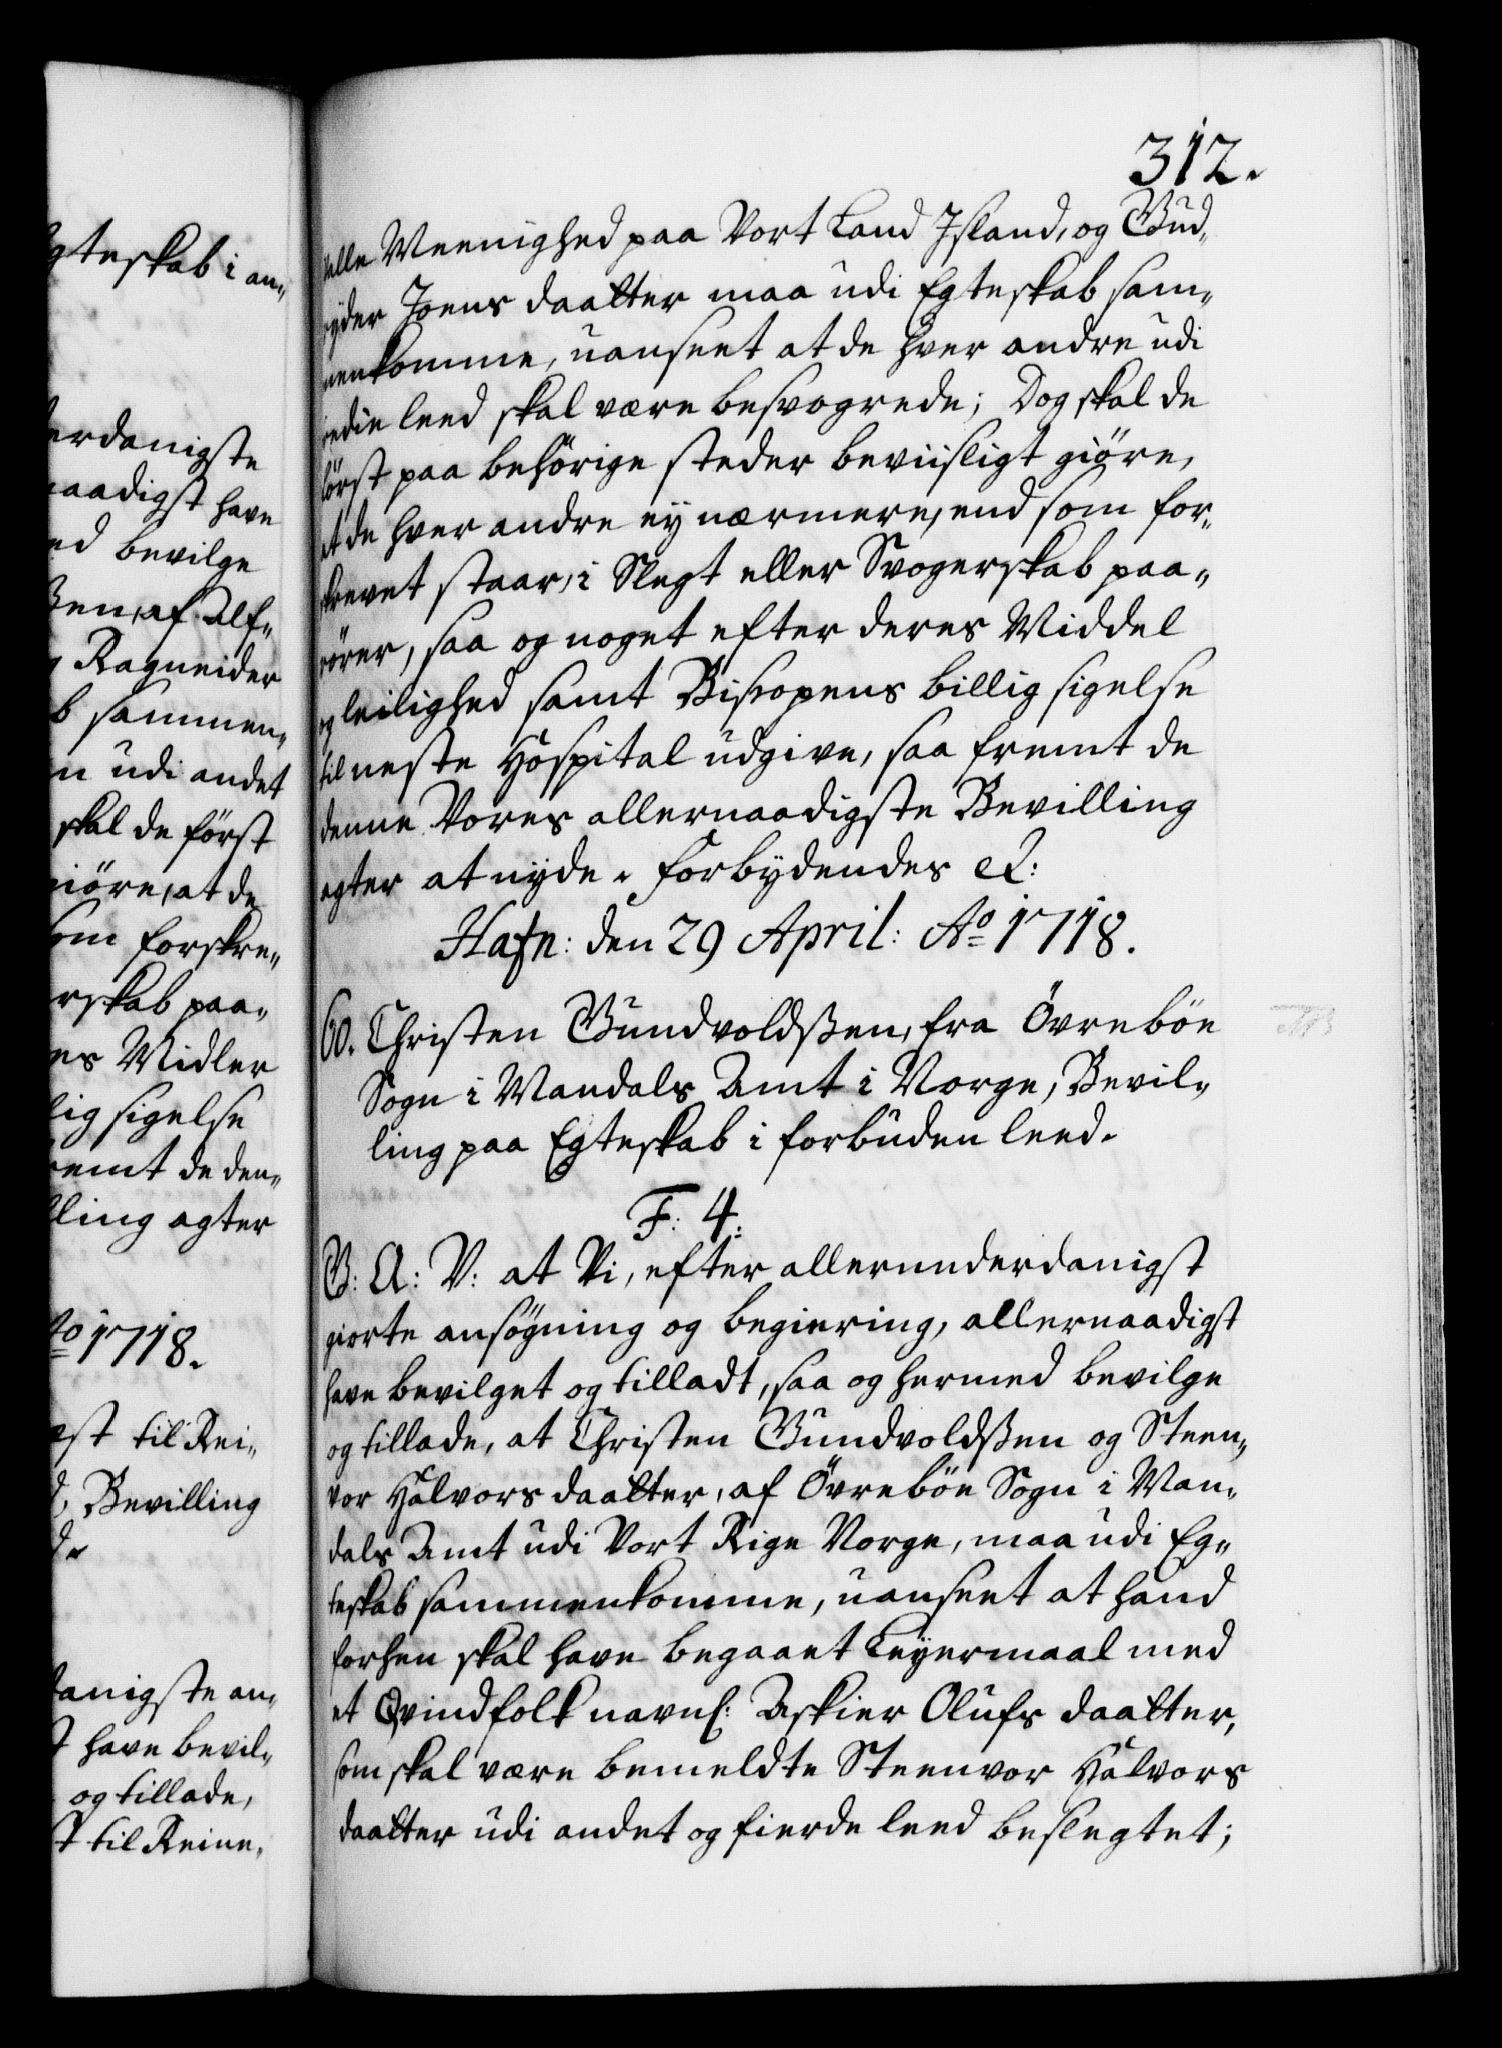 gteskab i an-
erdanigste
naadigst have
ed bevilge
ßen, af Alf-
g Ragneider
b sammen-
n udi andet
skal de först
giöre, at de
som forskre-
rskab paa-
es Midler
lig sigelse
remt de den-
lling agter
Ao 1718.
est til Rei-
d, Bevilling
d.
danigste an-
t have bevil-
og tillade,
st til Reine-
312.
alle Meenighed paa Vort Land Jsland, og Gud-
ryder Joens daatter maa udi Egteskab sam-
menkomme, uanseet at de hver andre udi
tredie leed skal være besvogrede; Dog skal de
först paa behörige steder beviisligt giöre,
at de hver andre ey nærmere, end som for-
skrevet staar, i Slegt eller Svogerskab paa-
rörer, saa og noget efter deres Middel
og leilighed samt Biskopens billig sigelse
til neste Hospital udgive, saa fremt de
denne Vores allernaadigste Bevilling
agter at nyde. Forbydendes &:
Hafn: den 29 April: Ao 1718.
60. Christen Gundvoldßen, fra Övreböe
Sogn i Mandals Amt i Norge, Bevil-
ling paa Egteskab i forbuden leed.
F: 4:
G: A: V: at Vi, efter allerunderdanigst
giorte ansögning og begiering, allernaadigst
have bevilget og tilladt, saa og hermed bevilge
og tillade, at Christen Gundvoldßen og Steen-
vor Halvors daatter, af Övreböe Sogn i Man-
dals Amt udi Vort Rige Norge, maa udi Eg-
teskab sammenkomme, uanseet at hand
forhen skal have begaaet Leyermaal med
et Qvindfolk navnl: Askier Olufs daatter,
som skal være bemeldte Steenvor Halvors
daatter udi andet og fierde leed beslegtet;